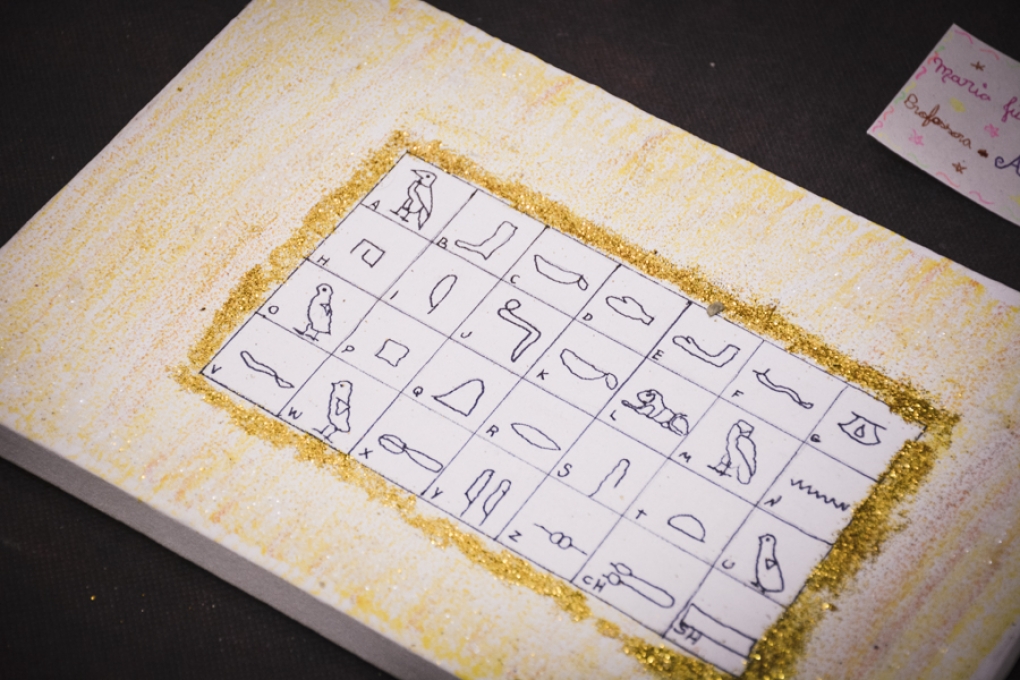 A B C D E F G
H I J K L M N
O P Q R S T U
V W X Y Z CH SH
Maria
Professora • A